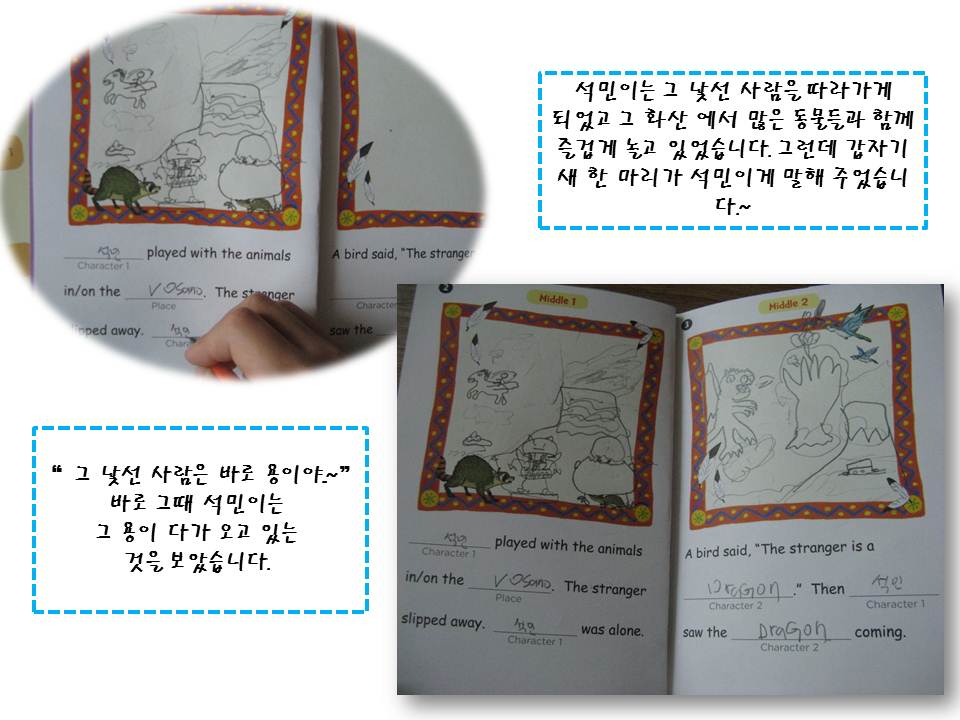 석민 played with the animals
Character 1
in/on the Vosano. The stranger
Place
slipped away. 석민
A bird said, "The stranger
Character
saw the
석민이는 그 낯선 사람을 따라가게
되었고 그 화산 에서 많은 동물들과 함께
즐겁게 놀고 있었습니다. 그런데 갑자기
새 한 마리가 석민이게 말해 주었습니
다.~
“ 그 낯선 사람은 바로 용이야.~”
바로 그때 석민이는
그 용이 다가 오고 있는
것을 보았습니다.
2
Middle 1
석민 played with the animals
Character 1
in/on the Vosano. The stranger
Place
slipped away. 석민 was alone.
Character 1
3
Middle 2
A bird said, "The stranger is a
DraGON." Then 석민
Character 2 Character 1
saw the DraGON coming.
Character 2